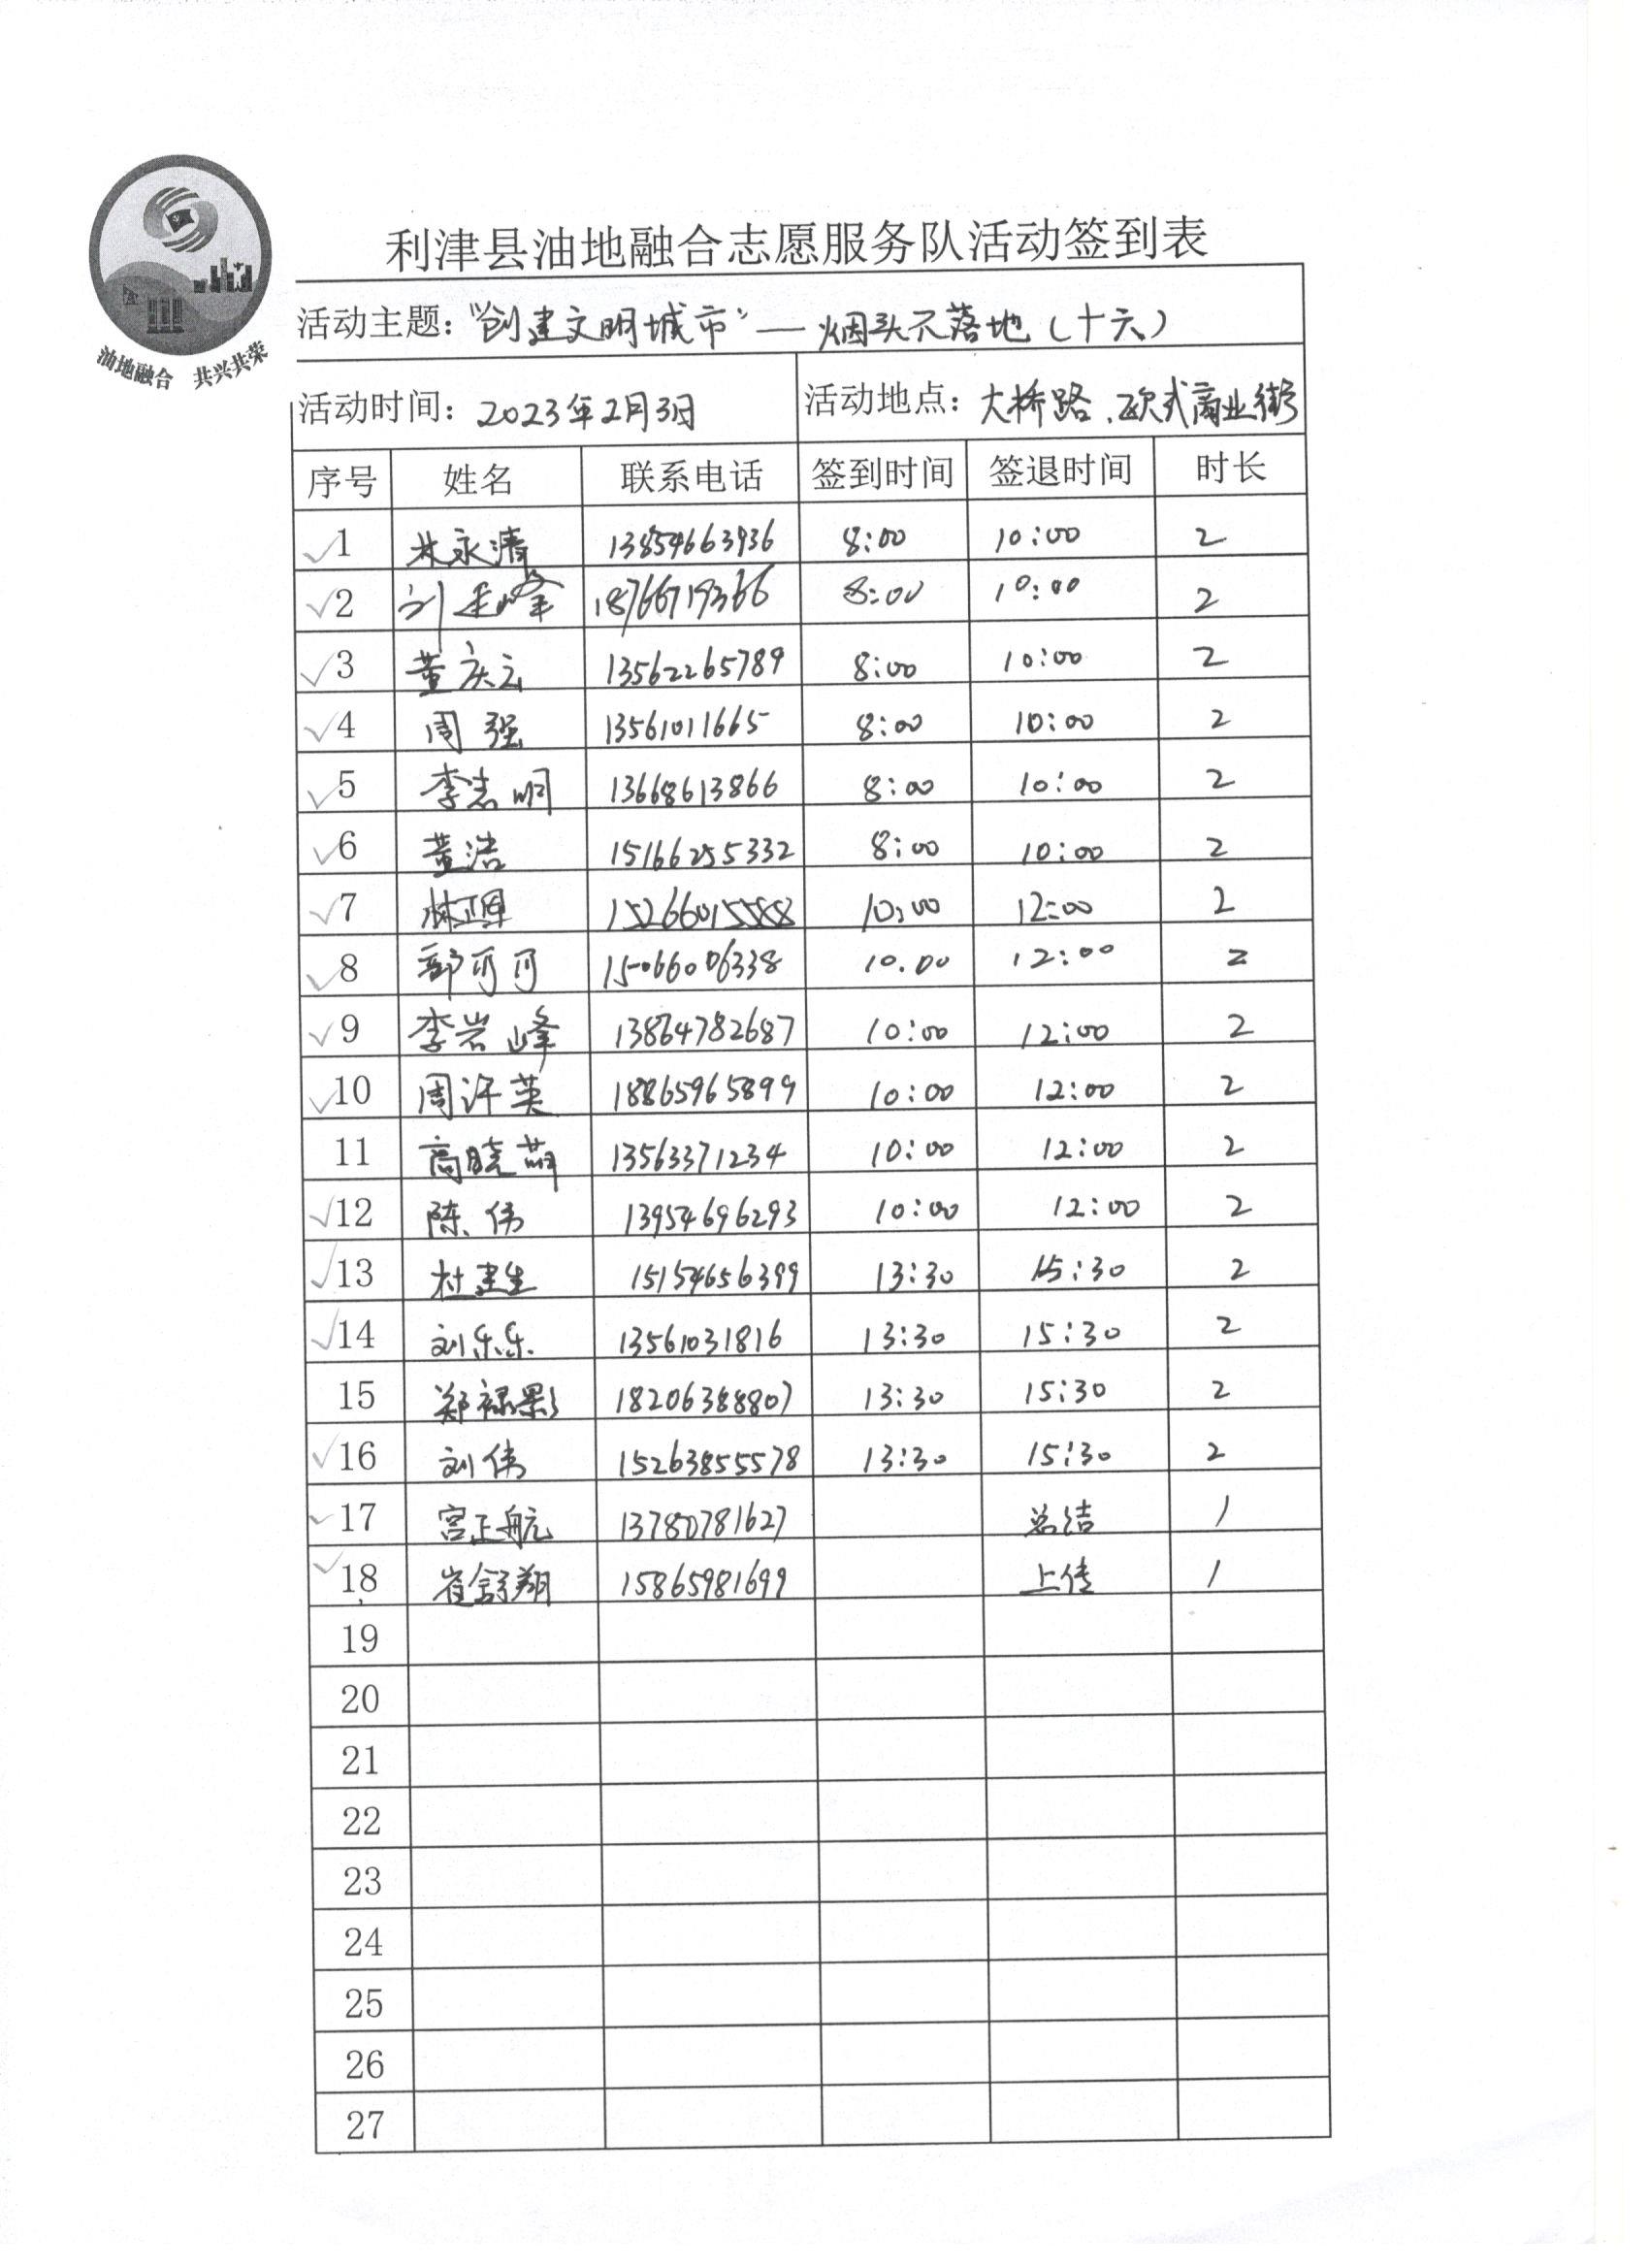 利津县油地融合志愿服务队活动签到表
油地融合 共兴共荣
活动主题：“创建文明城市”—烟头不落地（十六）
活动时间：2023年2月3日 活动地点：大桥路、欧式商业街
序号 姓名 联系电话 签到时间 签退时间 时长
✓1 林永清 13854663936 8:00 10:00 2
✓2 刘 峰 18766719366 8:00 10:00 2
✓3 董庆云 13562265789 8:00 10:00 2
✓4 周强 13561011665 8:00 10:00 2
✓5 李志明 13668613866 8:00 10:00 2
✓6 董浩 15166255332 8:00 10:00 2
✓7 林 15266015588 10:00 12:00 2
✓8 郭可可 15066006338 10.00 12:00 2
✓9 李岩峰 13864782687 10:00 12:00 2
✓10 周许英 18865965899 10:00 12:00 2
11 高晓萌 13563371234 10:00 12:00 2
✓12 陈伟 13954696293 10:00 12:00 2
✓13 杜建生 15154656399 13:30 15:30 2
✓14 刘乐乐 13561031816 13:30 15:30 2
15 郑禄影 18206388807 13:30 15:30 2
✓16 刘伟 15263855578 13:30 15:30 2
✓17 宫正航 13780781627 总结 1
✓18 崔舒翔 15865981699 上传 1
19
20
21
22
23
24
25
26
27